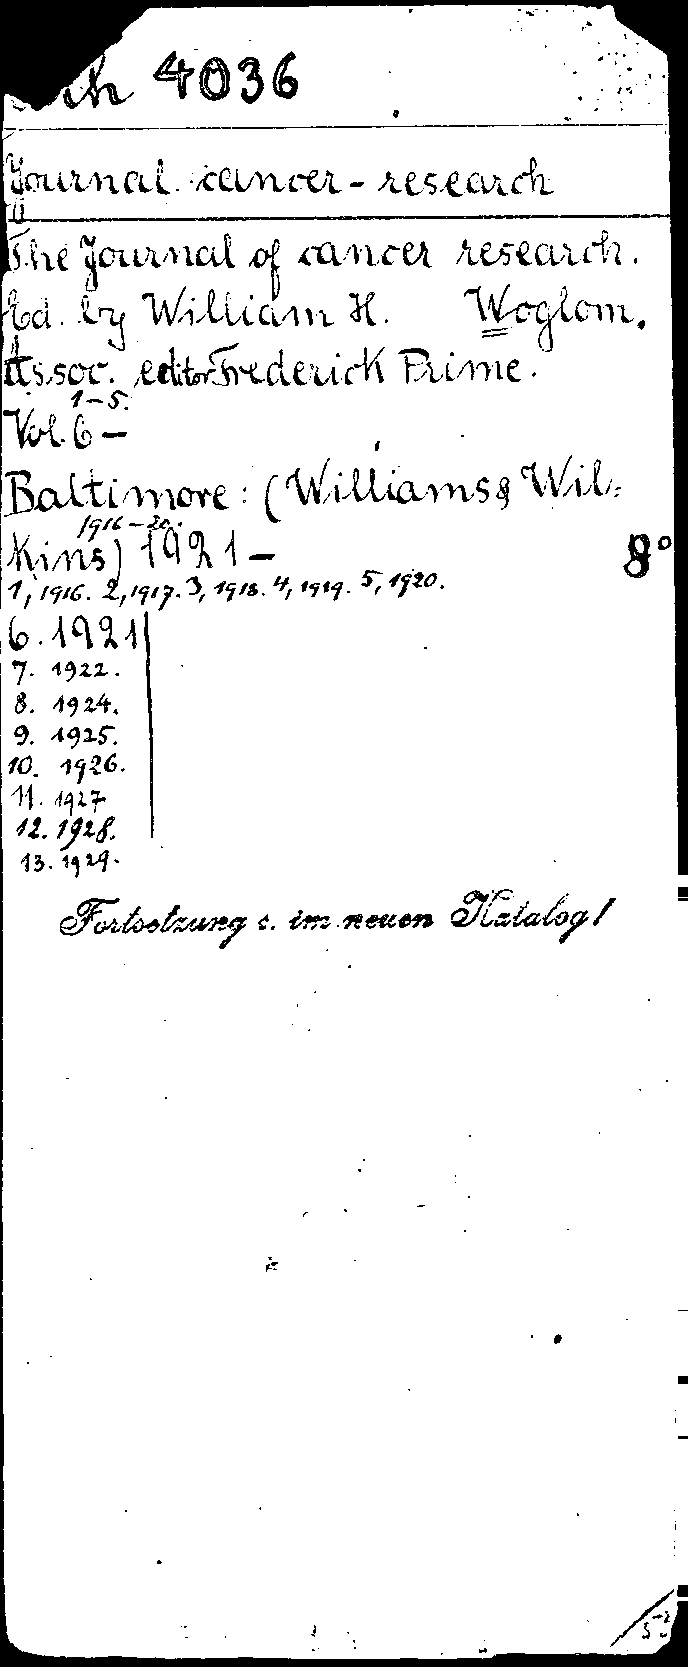 4036
Journal cancer-research
The Journal of cancer research.
Ed. by William H. Woglom.
Assoc. editor Frederick Prime.
1-5.
Vol. 6 -
Baltimore: (Williams & Wil-
1916-20.
kins) 1921 - 8°
1, 1916. 2, 1917. 3, 1918. 4, 1919. 5, 1920.
6. 1921
7. 1922.
8. 1924.
9. 1925.
10. 1926.
11. 1927
12. 1928.
13. 1929.
Fortsetzung s. im neuen Katalog!